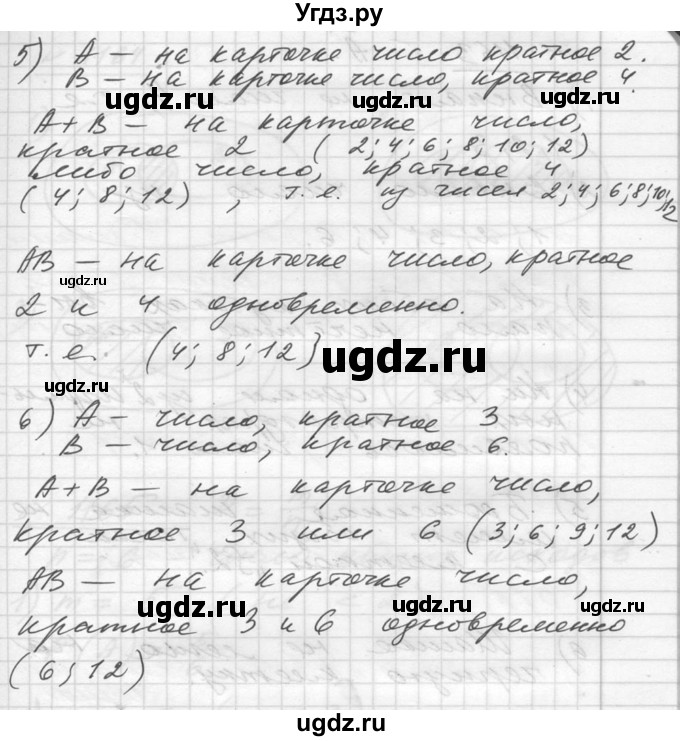 Угдз.ру
5) A — на карточке число кратное 2.
B — на карточке число, кратное 4.
ugdz.ru ugdz.ru ugdz.ru
A + B — на карточке число,
кратное 2 (2; 4; 6; 8; 10; 12)
либо число, кратное 4
(4; 8; 12), т.е. из чисел 2; 4; 6; 8; 10; 12
AB — на карточке число, кратное
ugdz.ru
2 и 4 одновременно.
т.е. (4; 8; 12)
ugdz.ru
ugdz.ru
6) A — число, кратное 3
B — число, кратное 6.
ugdz.ru ugdz.ru
A + B — на карточке число,
кратное 3 или 6 (3; 6; 9; 12)
AB — на карточке число,
ugdz.ru ugdz.ru
кратное 3 и 6 одновременно
(6; 12)
ugdz.ru
ugdz.ru